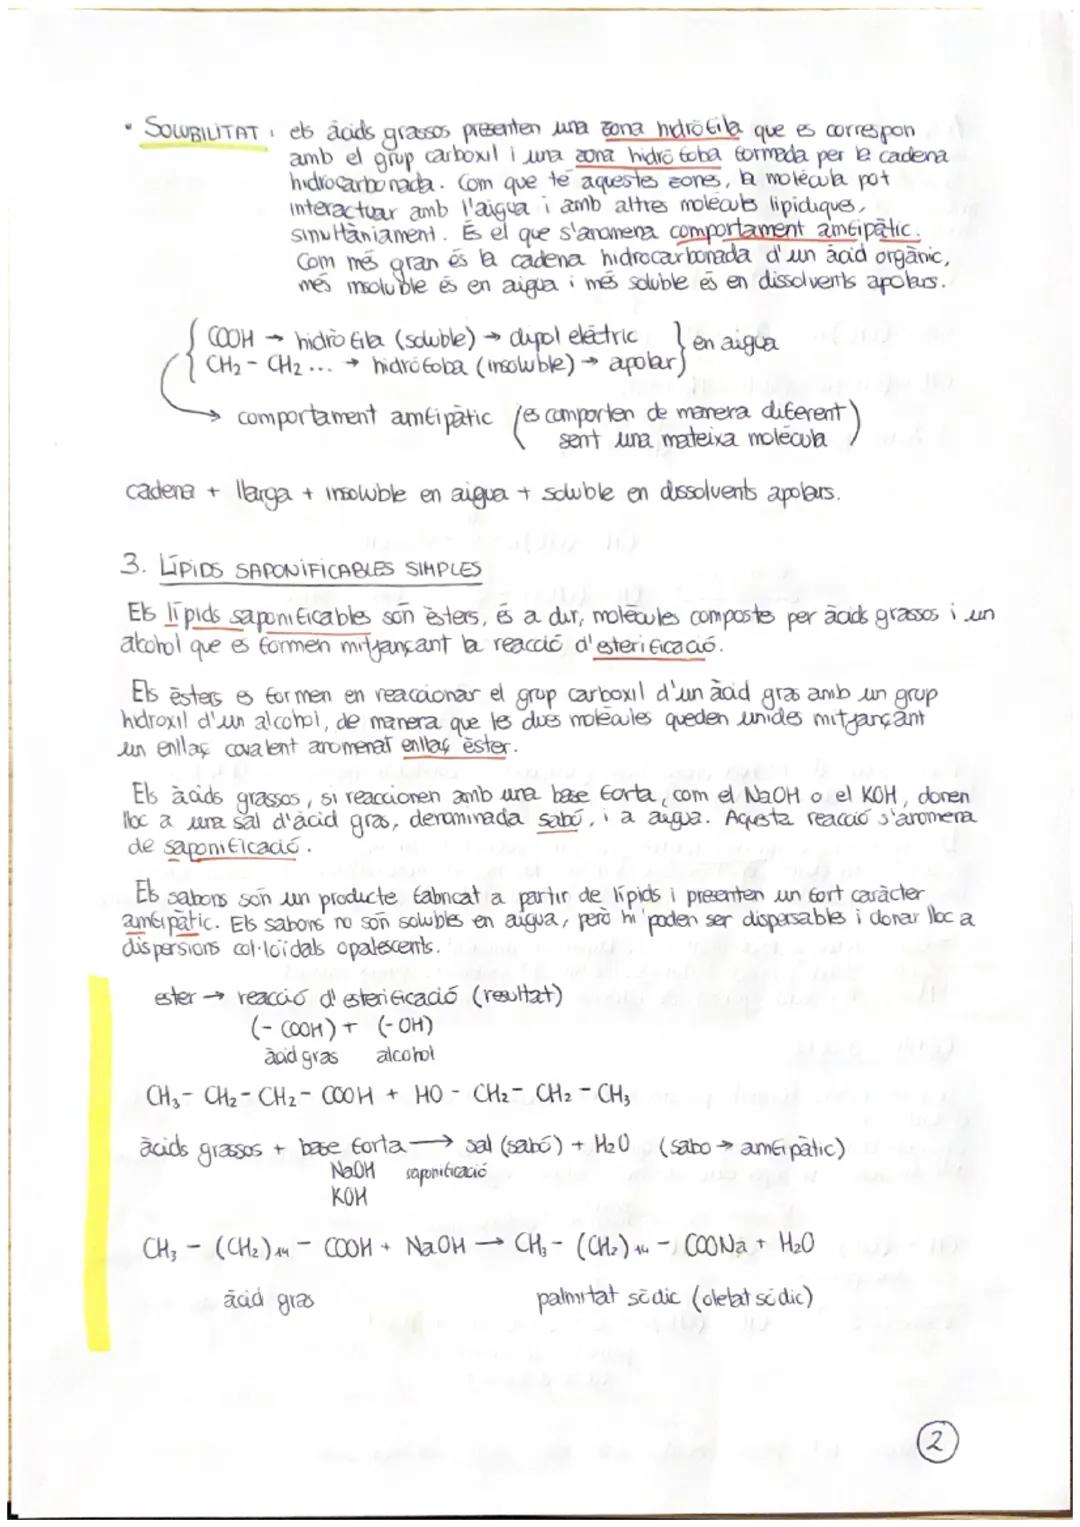 • SOLUBILITAT: els àcids grassos presenten una zona hidròfila que es correspon
amb el grup carboxil i una zona hidròfoba formada per la cadena
hidrocarbonada. Com que té aquestes zones, la molècula pot
interactuar amb l'aigua i amb altres molècules lipídiques,
simultàniament. És el que s'anomena comportament amfipàtic.
Com més gran és la cadena hidrocarbonada d'un àcid orgànic,
més insoluble és en aigua i més soluble és en dissolvents apolars.
COOH → hidròfila (soluble) → dipol elèctric
CH₂ - CH₂ ... → hidròfoba (insoluble) → apolar
en aigua
comportament amfipàtic (es comporten de manera diferent
sent una mateixa molècula)
cadena + llarga + insoluble en aigua + soluble en dissolvents apolars.
3. LÍPIDS SAPONIFICABLES SIMPLES
Els lípids saponificables són èsters, és a dir, molècules compostes per àcids grassos i un
alcohol que es formen mitjançant la reacció d'esterificació.
Els èsters es formen en reaccionar el grup carboxil d'un àcid gras amb un grup
hidroxil d'un alcohol, de manera que les dues molècules queden unides mitjançant
un enllaç covalent anomenat enllaç èster.
Els àcids grassos, si reaccionen amb una base forta, com el NaOH o el KOH, donen
lloc a una sal d'àcid gras, denominada sabó, i a aigua. Aquesta reacció s'anomena
de saponificació.
Els sabons són un producte fabricat a partir de lípids i presenten un fort caràcter
amfipàtic. Els sabons no són solubles en aigua, però hi poden ser dispersables i donar lloc a
dispersions col·loïdals opalescents.
ester → reacció d'esterificació (resultat)
(- COOH) + (- OH)
àcid gras alcohol
CH₃ - CH₂ - CH₂ - COOH + HO - CH₂ - CH₂ - CH₃
àcids grassos + base forta → sal (sabó) + H₂O (sabo → amfipàtic)
NaOH saponificació
KOH
CH₃ - (CH₂)₁₄ - COOH + NaOH → CH₃ - (CH₂)₁₄ - COONa + H₂O
àcid gras palmitat sòdic (oleat sòdic)
2